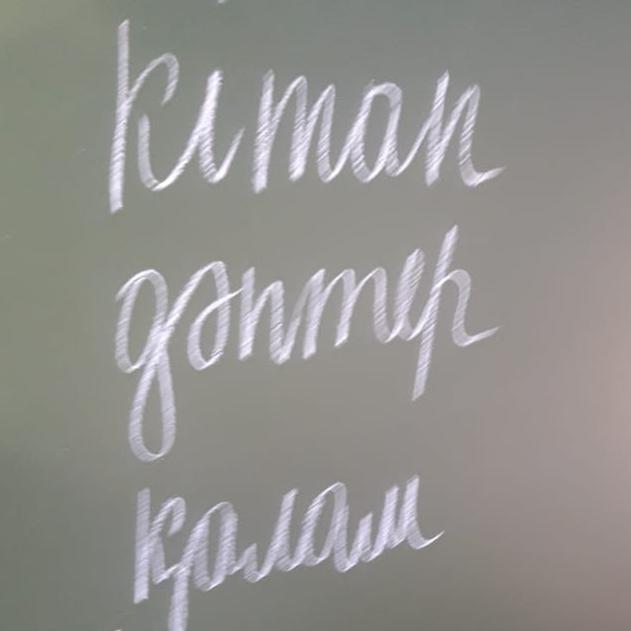 кітап
дәптер
қалам